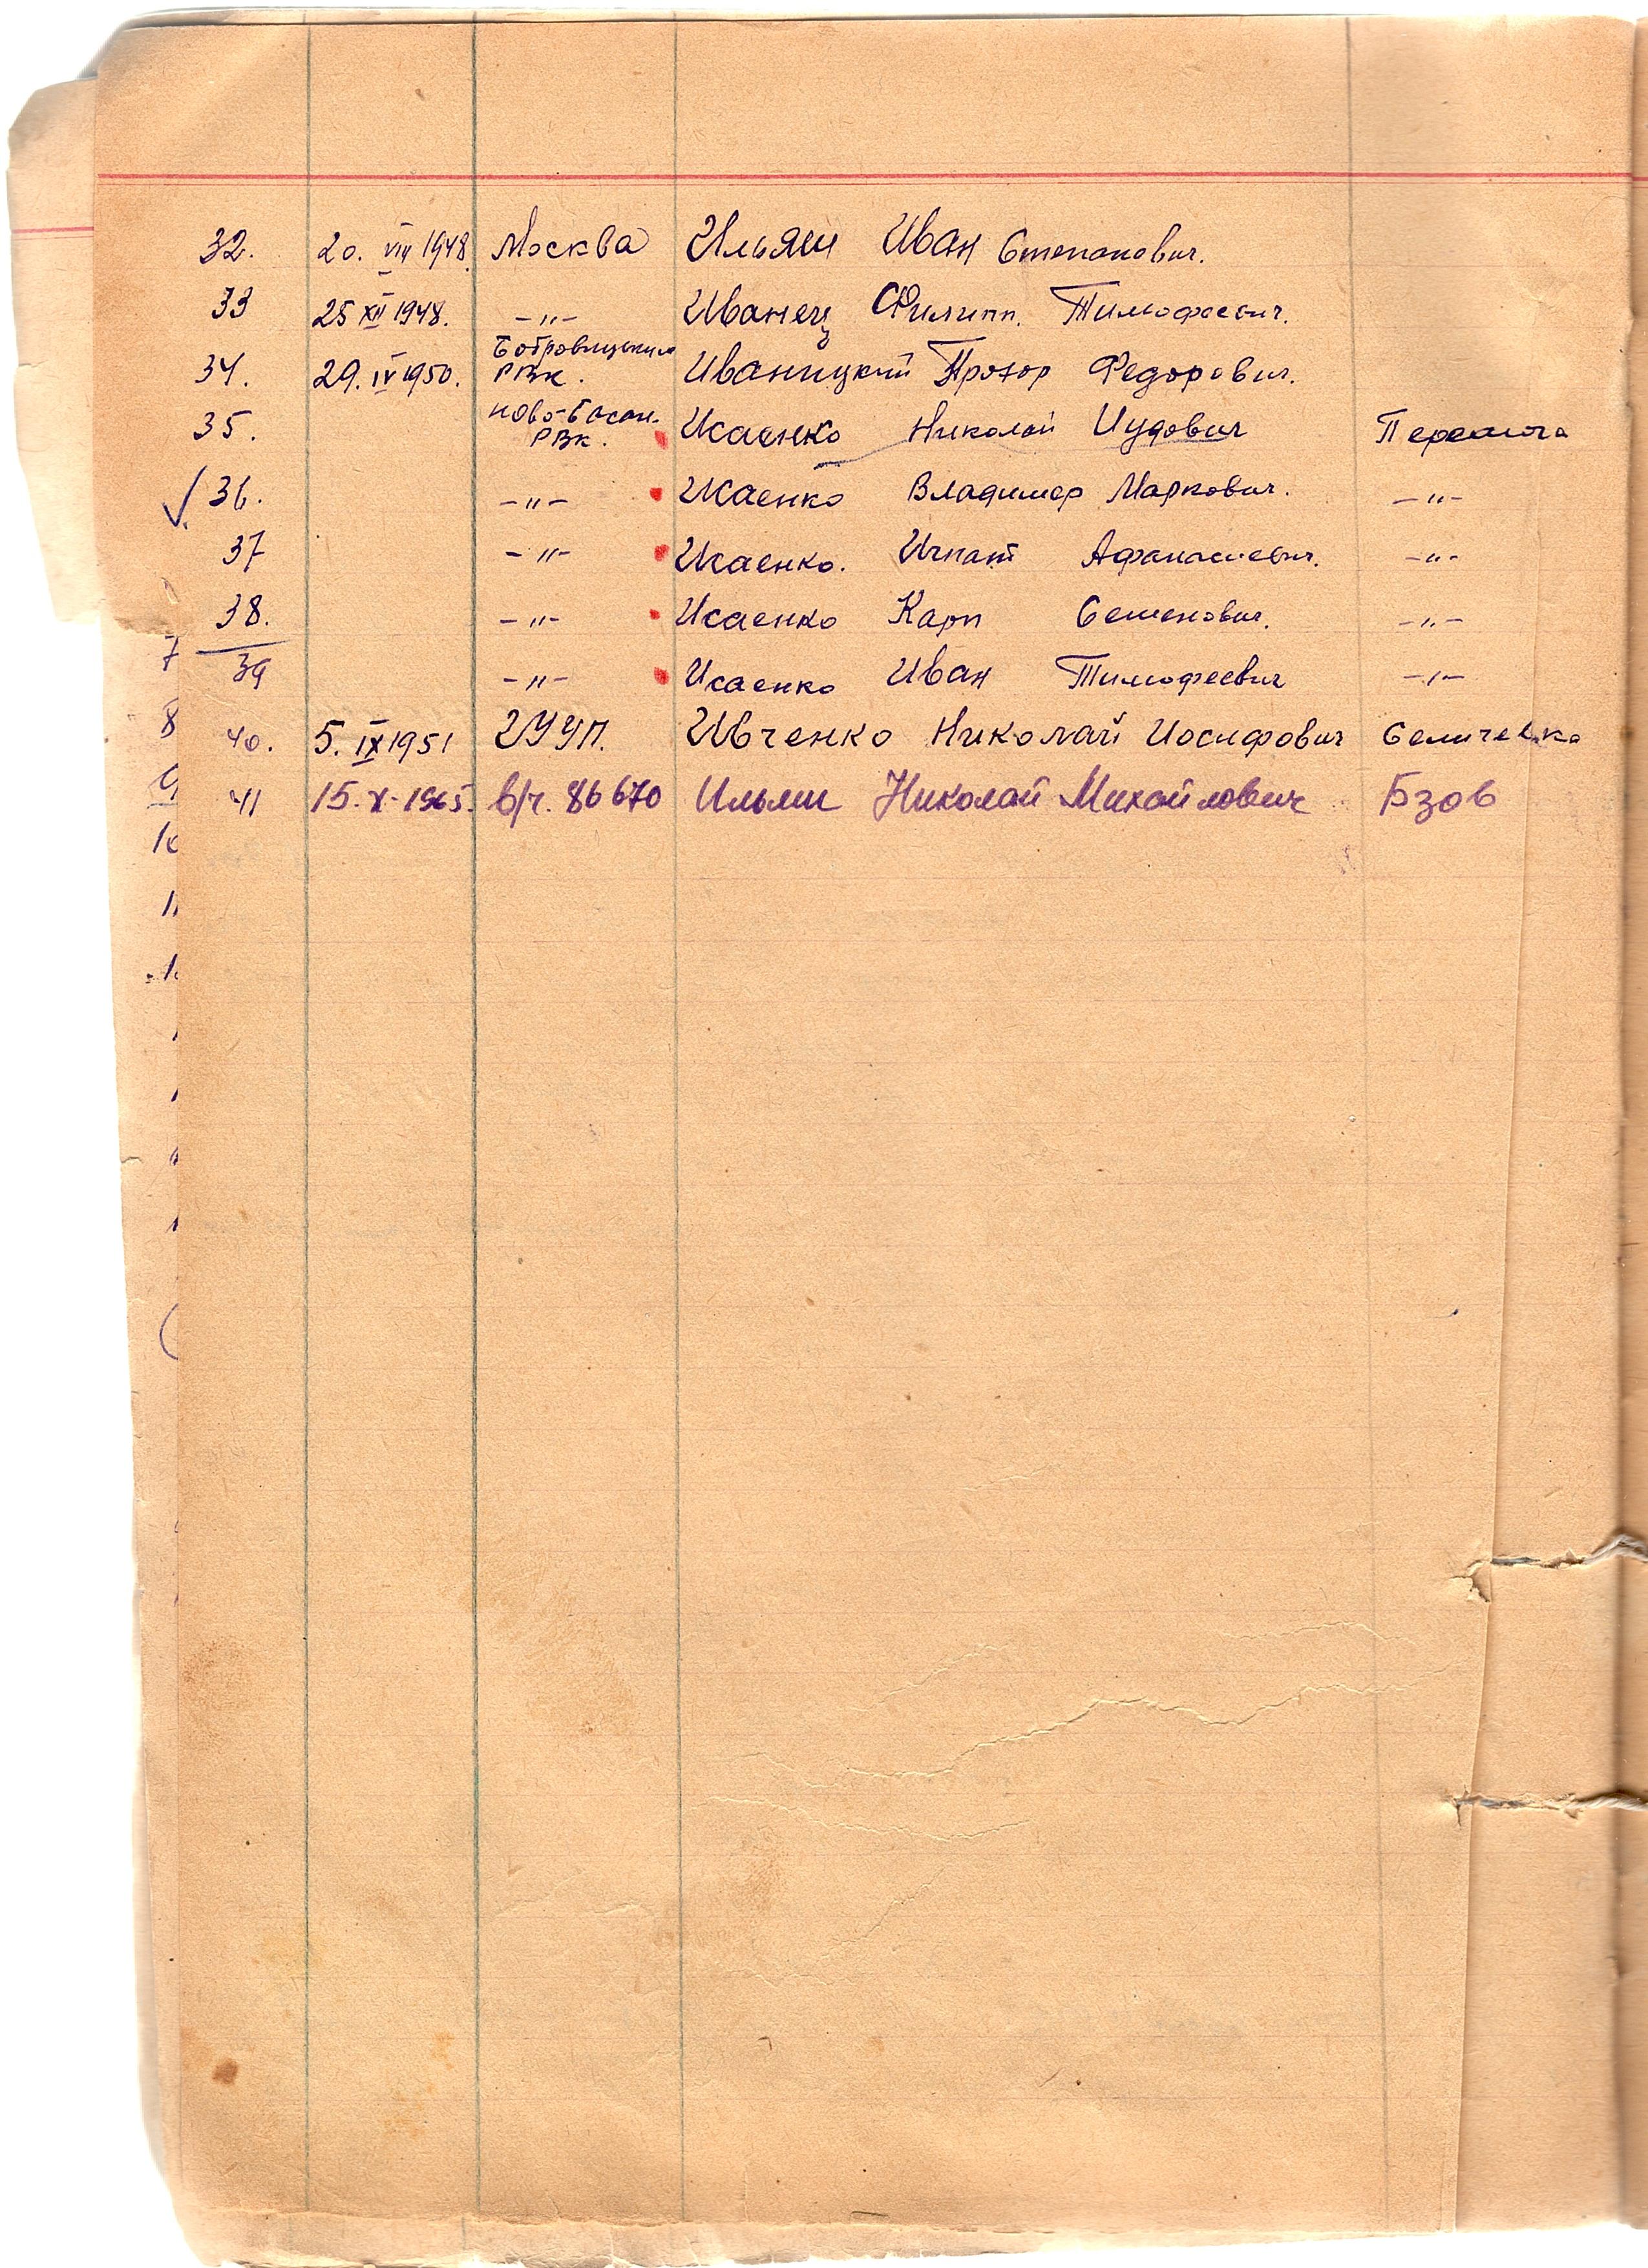 32. 20. VIII 1948. Москва Ильяш Иван Степанович.
33 25 XII 1948. -"- Иванец Филипп. Тимофеевич.
34. 29. IV 1950. Бобровицким РВК. Иваницкий Прохор Федорович.
35. Ново-Басан. РВК. Исаенко Николай Иудович
✓ 36. -"- Исаенко Владимер Маркович. -"-
37 -"- Исаенко. Игнат Афанасиевич. -"-
38. -"- Исаенко Карп Семенович. -"-
39 -"- Исаенко Иван Тимофеевич -"-
40. 5. IX 1951 2УУП. Ивченко Николай Иосифович Селичевка
41 15. X- 1965. в/ч. 86670 Ильяш Николай Михайлович Бзов
7
8
9
10
11